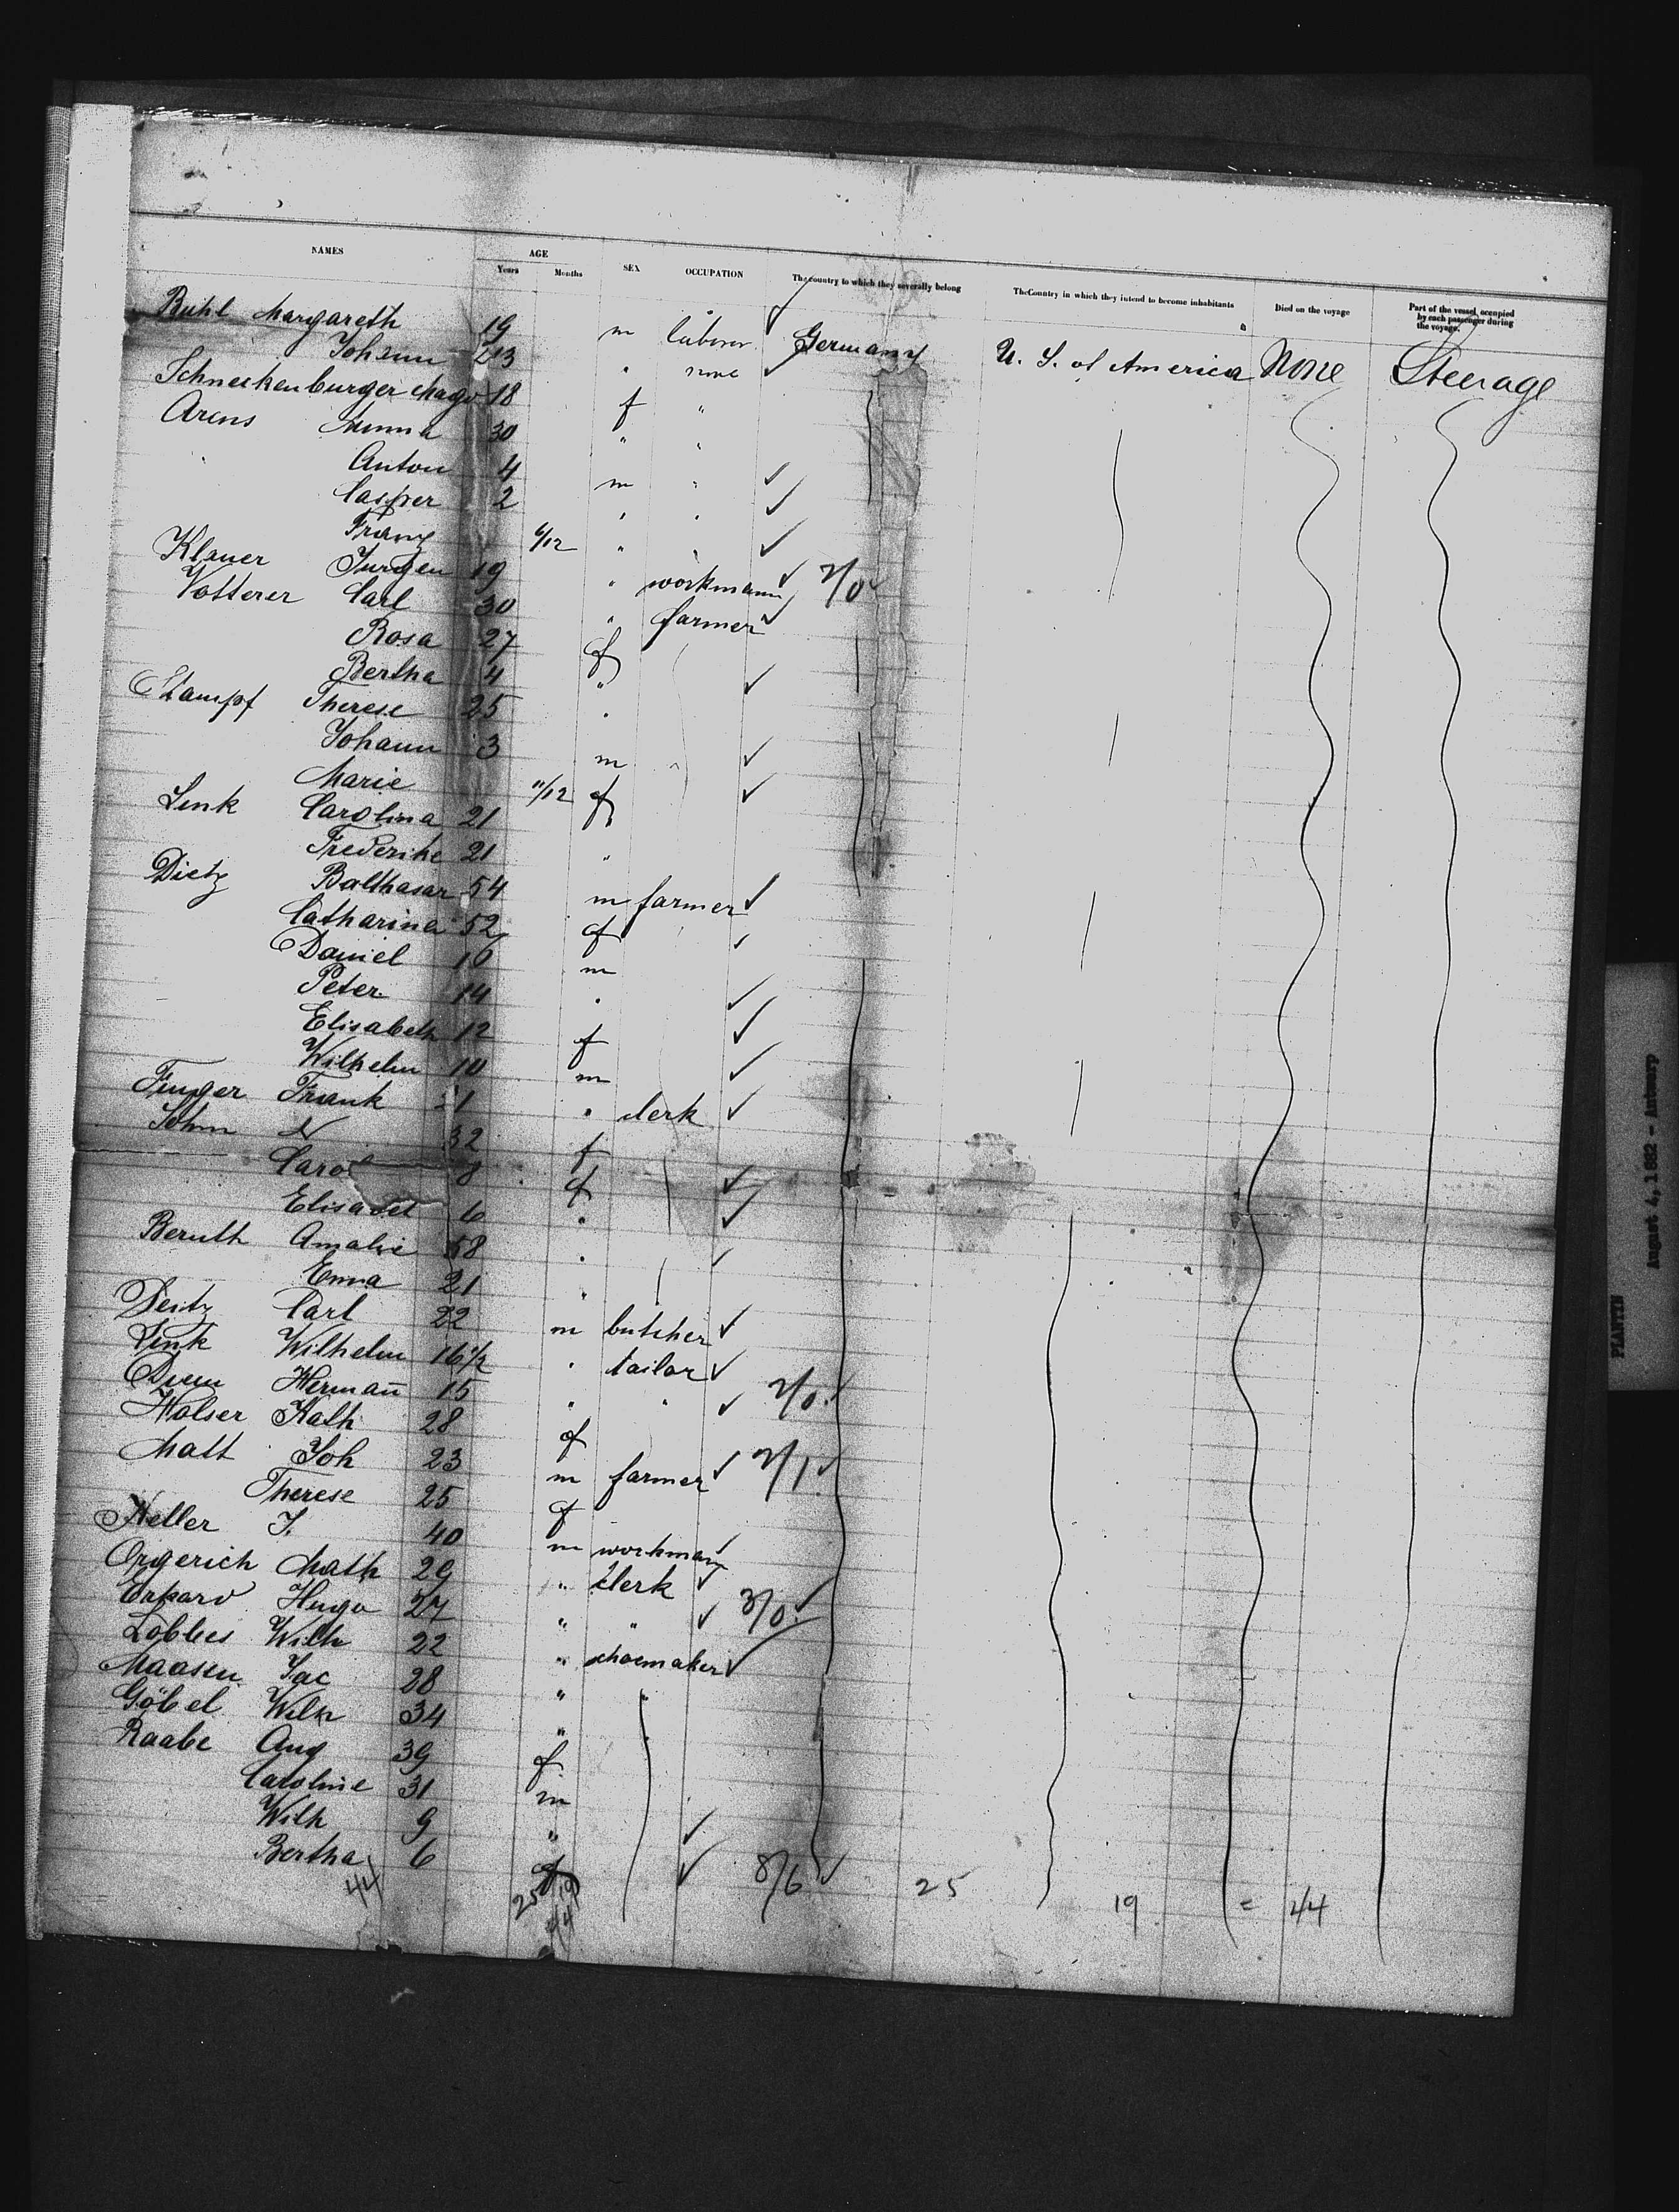 NAMES AGE Years Months SEX OCCUPATION The country to which they severally belong The Country in which they intend to become inhabitants Died on the voyage Part of the vessel occupied by each passenger during the voyage.
Ruhl Margareth 19 m laborer Germany U. S. of America None Steerage
Johann 23 " none
Schneckenburger Magd 18 f "
Arens Minna 30 " "
Anton 4 m "
Casper 2 " "
Franz 6/12 " "
Klauer Jurgen 19 " workmann 2/0
Votterer Carl 30 " farmer
Rosa 27 f
Bertha 4 "
Stampf Therese 25 "
Johann 3 m
Marie 11/12 f
Link Carolina 21
Frederike 21 "
Dietz Balthasar 54 m farmer
Catharina 52 f
Daniel 16 m
Peter 14 "
Elisabeth 12 f
Wilhelm 10 m
Finger Frank 21 " clerk
32 f
Caro 8 f
Elisabet 6 "
Beruth Amalie 58 "
Emma 21 "
Deitz Carl 22 m butcher
Link Wilhelm 16 1/2 " tailor
Herman̄ 15 " " 2/0
Holser Kath 28 f
Matt Joh 23 m farmer 2/1
Therese 25 f
Keller J. 40 m workman
Orgerich Math 29 " clerk
Hugo 27 " " 3/0
Löbbes Wilh 22 " shoemaker
Maasen Jac 28 " "
Göbel Wilh 34 "
Raabe Aug 39 f
Caroline 31 m
Wilh 9 "
Bertha 6 f 8/6 25 19 = 44
44 25/19 44
PLANTYN
August 4, 1882 - Antwerp